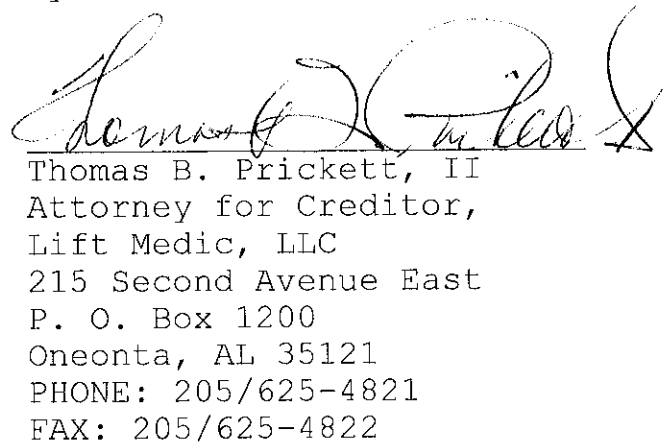 Thomas B. Prickett, II
Attorney for Creditor,
Lift Medic, LLC
215 Second Avenue East
P. O. Box 1200
Oneonta, AL 35121
PHONE: 205/625-4821
FAX: 205/625-4822